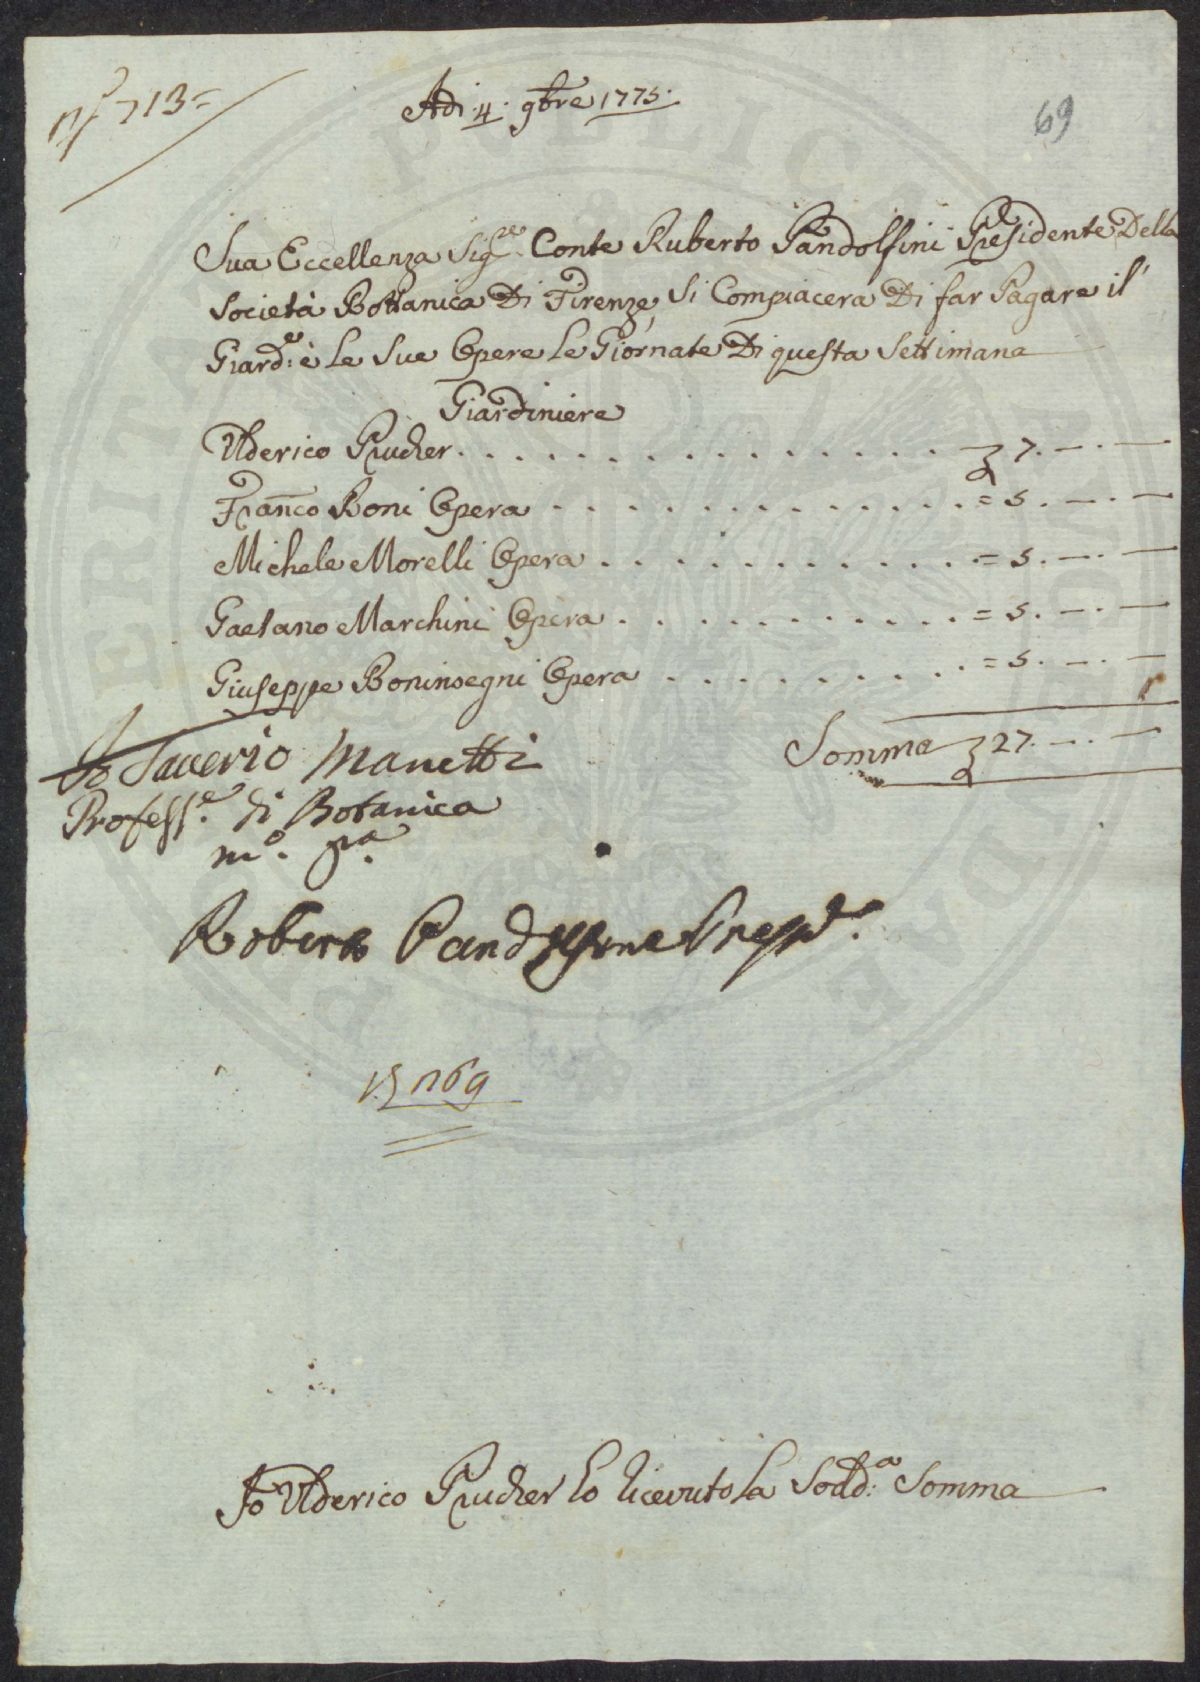 N.º 713=
Adi 4. 9bre 1775.
69
Sua Eccellenza Sig.re Conte Ruberto Pandolfini Presidente Della
Società Bottanica Di Firenze, Si Compiacerà Di far Pagare il
Giard.e è Le Sue Opere Le Giornate Di questa Settimana
Giardiniere
Ulderico Prucher . . . . . . . . . . . . . . . . 7. —. —
Fran.co Boni Opera . . . . . . . . . . . . . = 5. —. —
Michele Morelli Opera . . . . . . . . . . . = 5. —. —
Gaetano Marchini Opera . . . . . . . . . . = 5. —. —
Giuseppe Boninsegni Opera . . . . . . . . = 5. —. —
Somma 27. —. —
Io Saverio Manetti
Profess.e di Botanica
m.o p.a
Roberto Pandolfini Presid.e
1769
Io Ulderico Prucher ho ricevuto La Sodd.a Somma